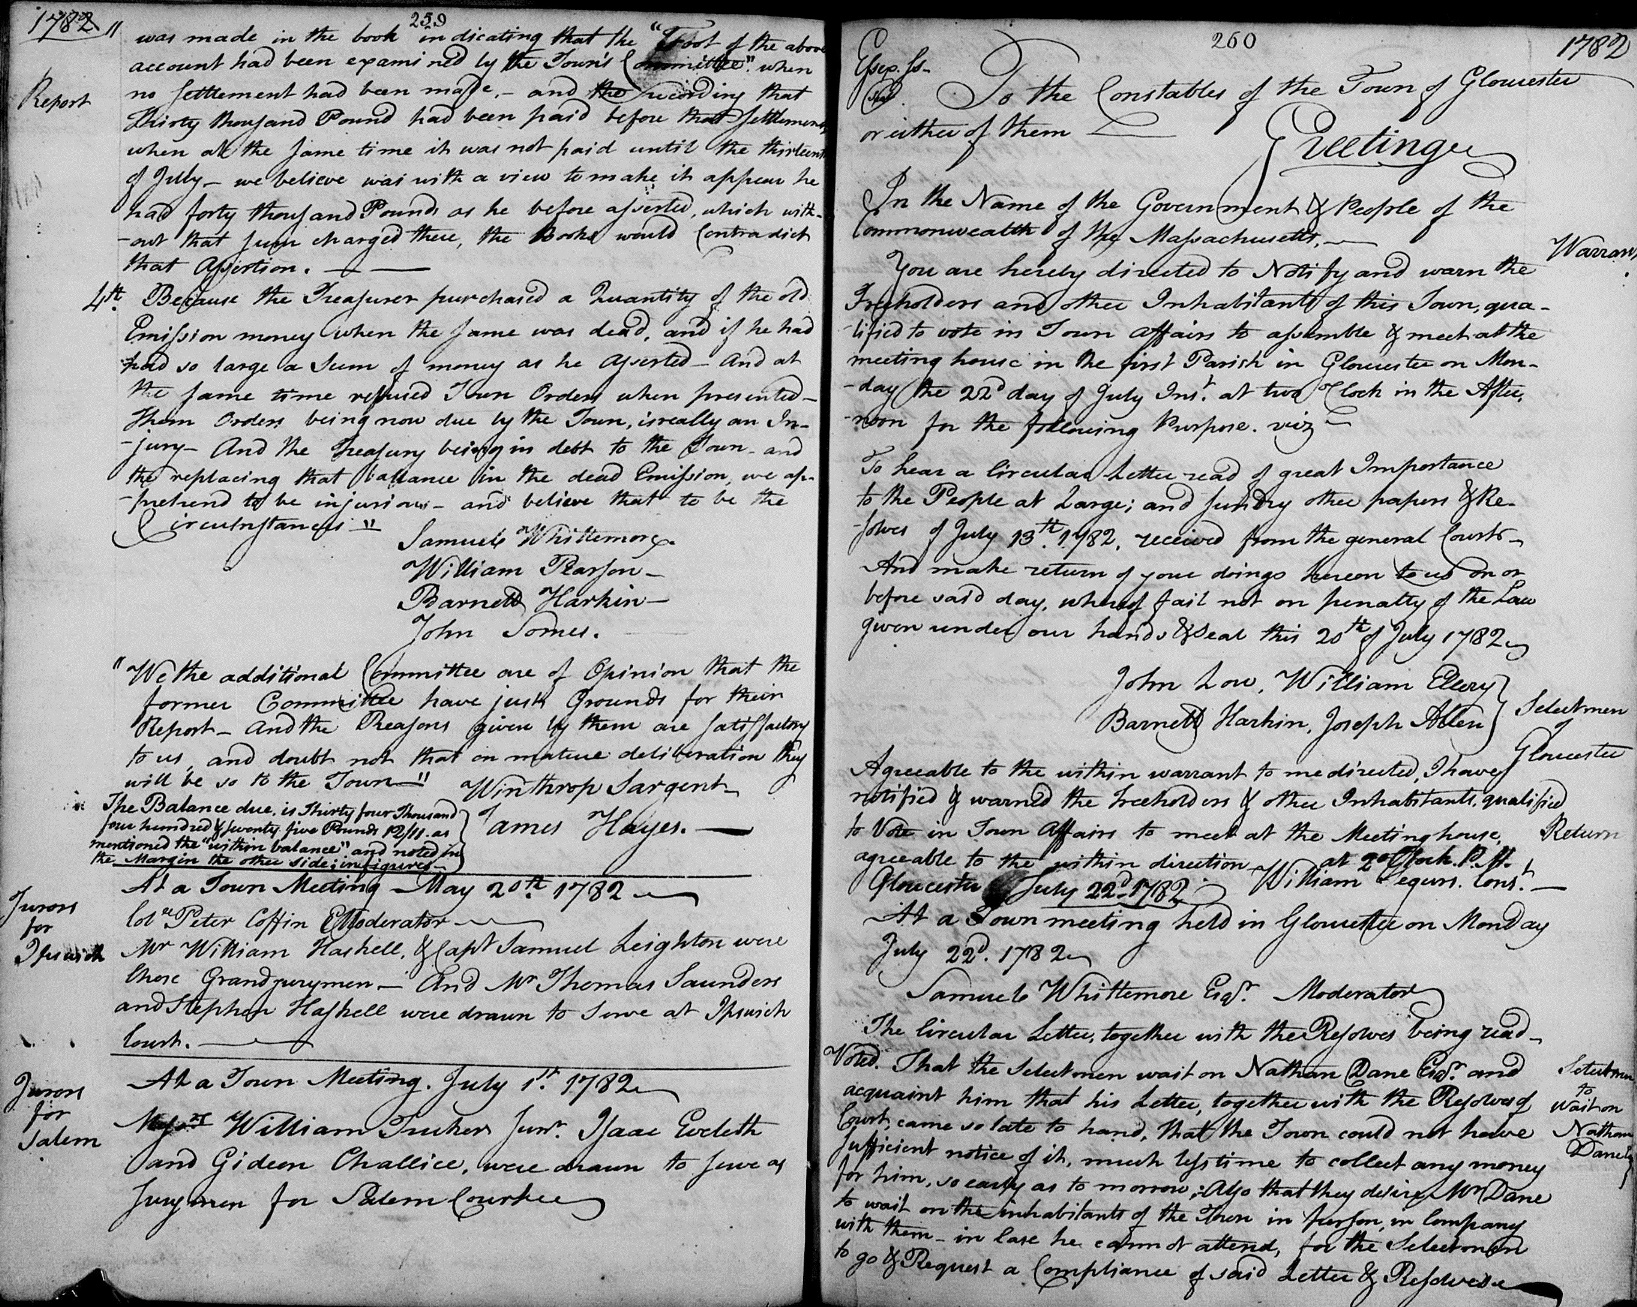 1782
259
"was made in the book indicating that the "Foot of the above
account had been examined by the Town's Committee". when
Report
no settlement had been made, - and the reciording that
Thirty thousand Pound had been paid before that settlement,
when at the same time it was not paid until the thirteenth
of July - we believe was with a view to make it appear he
had forty thousand Pounds as he before asserted, which with-
-out that sum charged there, the Books would Contradict
that Assertion.
4th. Because the Treasurer purchased a Quantity of the old
Emission money when the same was dead, and if he had
had so large a Sum of money as he Asserted - And at
the same time refused Town Orders when presented -
them Orders being now due by the Town, is really an In-
-jury - And the Treasury being in debt to the Town - and
the replacing that ballance in the dead Emission, we ap-
-prehend to be injurious - and believe that to be the
Circumstances"
Samuel Whittemore.
William Pearson -
Barnett Harkin -
John Somes.
"We the additional Committee are of Opinion that the
former Committee have just Grounds for their
Report - And the Reasons given by them are satisfactory
to us, and doubt not that on mature deliberation they
will be so to the Town -"
Winthrop Sargent
James Hayes.
The Balance due, is Thirty four Thousand
four hundred & seventy five Pounds 12/11. as
mentioned the "within balance" and noted in
the Margin the other side; in figures
At a Town Meeting - May 20th. 1782
Jurors
for
Ipswich
Coln. Peter Coffin Moderator
Mr William Haskell, & Capt Samuel Leighton were
Chose Grandjurymen - And Mr Thomas Saunders
and Stephen Haskell were drawn to Serve at Ipswich
Court.
At a Town Meeting. July 1st. 1782
Jurors
for
Salem
William Tucker Junr. Isaac Eveleth
and Gideon Challice, were drawn to serve as
Jurymen for Salem Court
260
1782
Essex. Ss -
Seal
To the Constables of the Town of Gloucester
or either of them
Greeting
In the Name of the Government & People of the
Commonwealth of the Massachusetts.
Warrant
You are hereby directed to Notify and warn the
Freeholders and other Inhabitants of this Town, qua-
-lified to vote in Town Affairs to assemble & meet at the
meeting house in the first Parish in Gloucester on Mon-
-day the 22d day of July Inst. at two o'Clock in the After-
-noon for the following Purpose. viz
To hear a Circular Letter read of great Importance
to the People at Large; and sundry other papers & Re-
-solves of July 13th. 1782, received from the general Court -
And make return of your doings hereon to us on or
before said day, whereof fail not on penalty of the Law
given under our hands & Seal this 20th of July 1782
John Low, William Ellery
Barnett Harkin, Joseph Allen
Selectmen
of
Gloucester
Agreeable to the within warrant to me directed, I have
notified & warned the Freeholders & other Inhabitants, qualified
to Vote in Town Affairs to meet at the Meeting house
Return
agreeable to the within direction at 2 oClock. P.M.
Gloucester July 22d. 1782 William Cons't.
At a Town meeting held in Gloucester on Monday
July 22d. 1782
Samuel Whittemore Esqr. Moderator
The Circular Letter, together with the Resolves being read -
Voted. That the Selectmen wait on Nathan Dane Esqr. and
acquaint him that his Letter, together with the Resolves of
Court, came so late to hand, that the Town could not have
sufficient notice of it, much less time to collect any money
for him, so early as to morrow; Also that they desire Mr Dane
to wait on the inhabitants of the Town in person, in Company
with them - in Case he cannot attend, for the Selectmen
to go & Request a Compliance of said Letter & Resolves
Selectmen
to
wait on
Nathan
Dane